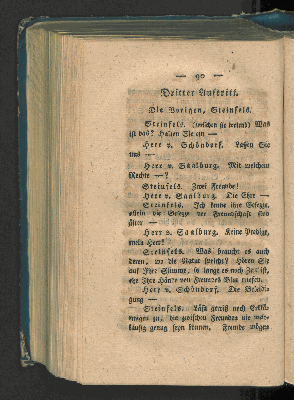 — 90 —
Dritter Auftritt.
Die Vorigen, Steinfels.
Steinfels. (zwischen sie tretend) Was
ist das? Halten Sie ein —
Herr v. Schöndorf. Laßen Sie
uns —
Herr v. Saalburg. Mit welchem
Rechte —?
Steinfels. Zwei Freunde!
Herr v. Saalburg. Die Ehre —
Steinfels. Ich kenne ihre Gesetze,
allein die Gesetze der Freundschaft sind
älter —
Herr v. Saalburg. Keine Predigt,
mein Herr!
Steinfels. Was braucht es auch
deren, wo die Natur spricht? Hören Sie
auf Ihre Stimme, so lange es noch Zeit ist,
ehe Ihre Hände von Freundes Blut triefen.
Herr v. Schöndorf. Die Beleidi-
gung —
Steinfels. Läßt gewiß noch Erklä-
rungen zu, die zwischen Freunden nie
häufig genug seyn können. Fremde mögen